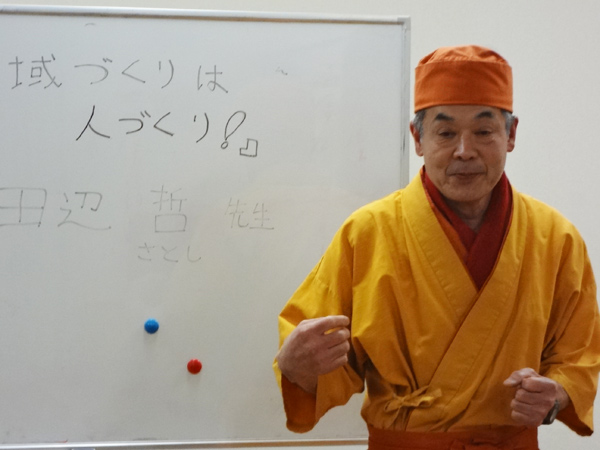 域づくりは
人づくり!』
田辺 哲 先生
さとし